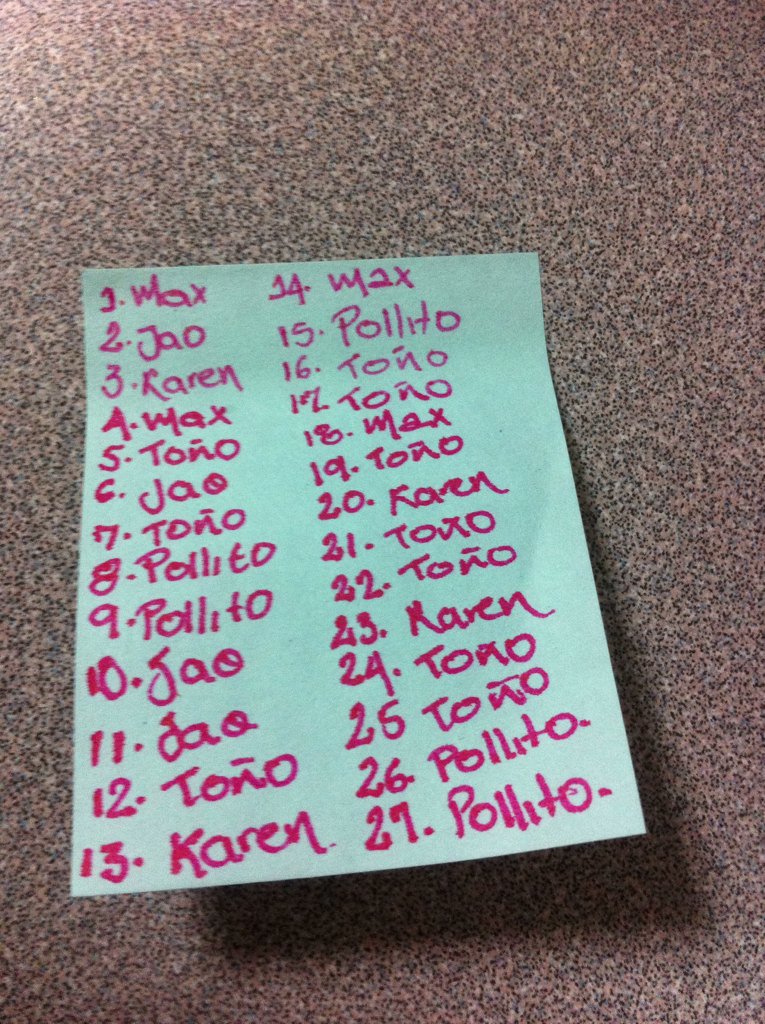 1. Max
2. Jao
3. Karen
4. Max
5. Toño
6. Jao
7. Toño
8. Pollito
9. Pollito
10. Jao
11. Jao
12. Toño
13. Karen.
14. Max
15. Pollito
16. Toño
17. Toño
18. Max
19. Toño
20. Karen
21. Toño
22. Toño
23. Karen
24. Toño
25 Toño
26. Pollito.
27. Pollito.